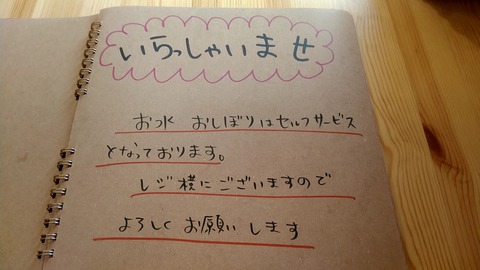 いらっしゃいませ
お水 おしぼりはセルフサービス
となっております。
レジ横にございますので
よろしくお願いします